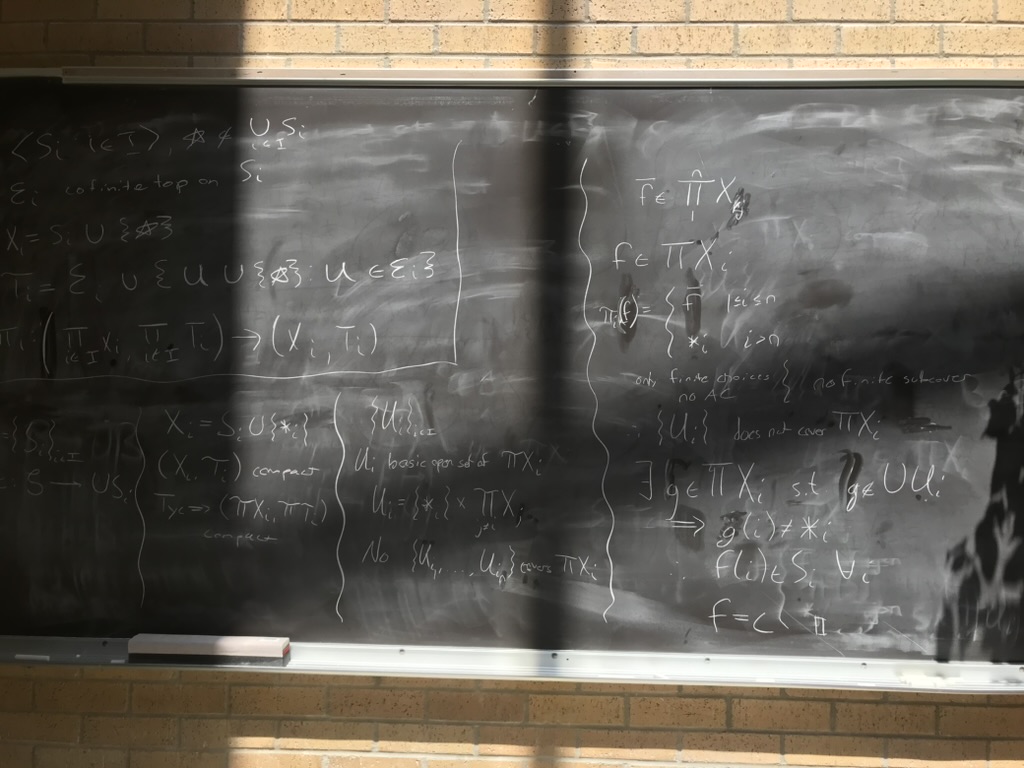 ⟨Sᵢ i∈I⟩, ☆ ∉ ⋃ Sᵢ
i∈I
Ɛᵢ cofinite top on Sᵢ
Xᵢ = Sᵢ ∪ {☆}
Tᵢ = Ɛᵢ ∪ { U ∪ {☆} : U ∈ Ɛᵢ}
πᵢ : ( ∏ Xᵢ, ∏ Tᵢ ) → (Xᵢ, Tᵢ)
i∈I i∈I
={Sᵢ}i∈I
S → ∪Sᵢ
Xᵢ = Sᵢ ∪ {*ᵢ}
(Xᵢ Tᵢ) compact
Tyc => (πXᵢ πTᵢ)
compact
{Uᵢ}i∈I
Uᵢ basic open set of πXᵢ
Uᵢ = {*ᵢ} × ∏Xⱼ
j≠i
No {Uᵢ₁, ..., Uᵢₙ} covers πXᵢ
n
f̄ ∈ ∏ X
1
f ∈ πXᵢ
πᵢ(f) = { f̄ 1≤i≤n
*ᵢ i>n
only finite choices { no finite subcover
no AC
∴ {Uᵢ} does not cover πXᵢ
∃ g ∈ πXᵢ s.t g ∉ ∪Uᵢ
⟹ g(i) ≠ *ᵢ
∴ f(i) ∈ Sᵢ ∀ᵢ
f = c